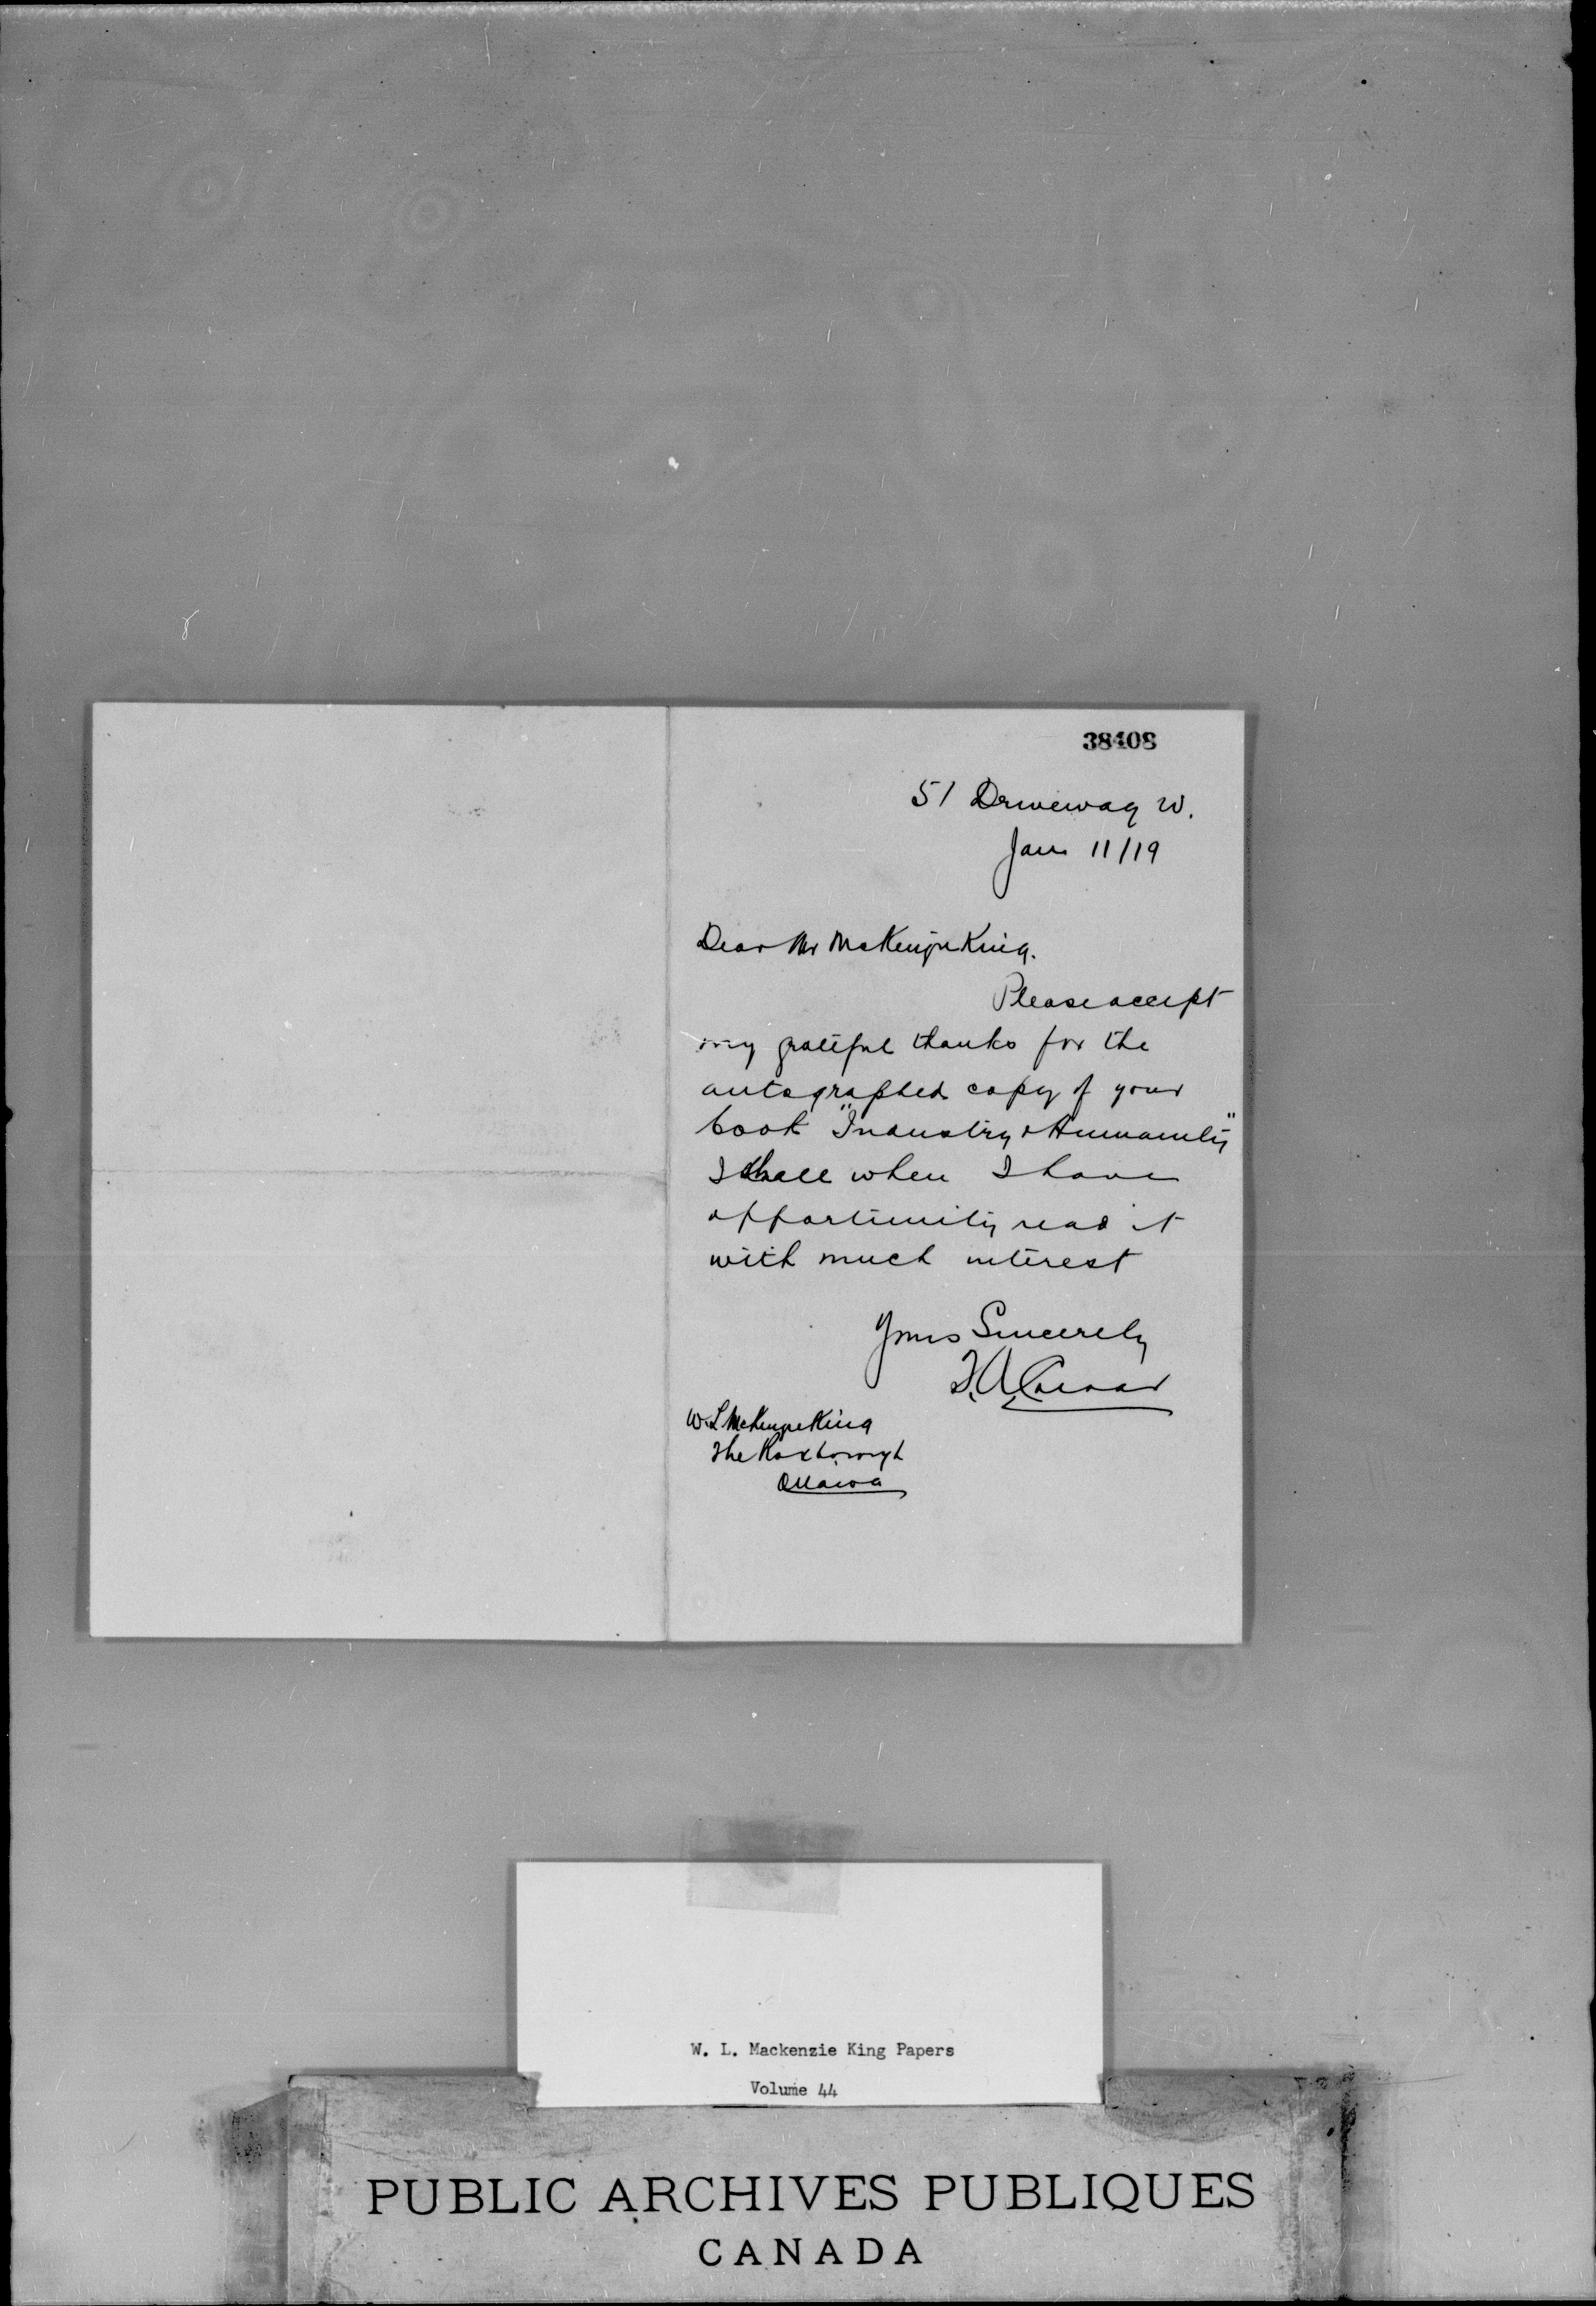 38408
51 Driveway W.
Jan 11/19
Dear Mr McKenzie King.
Please accept
my grateful thanks for the
autographed copy of your
book "Industry & Humanity"
I shall when I have
opportunity read it
with much interest
Yours Sincerely
W. L McKenzie King
The Roxborough
Ottawa
W. L. Mackenzie King Papers
Volume 44
PUBLIC ARCHIVES PUBLIQUES
CANADA